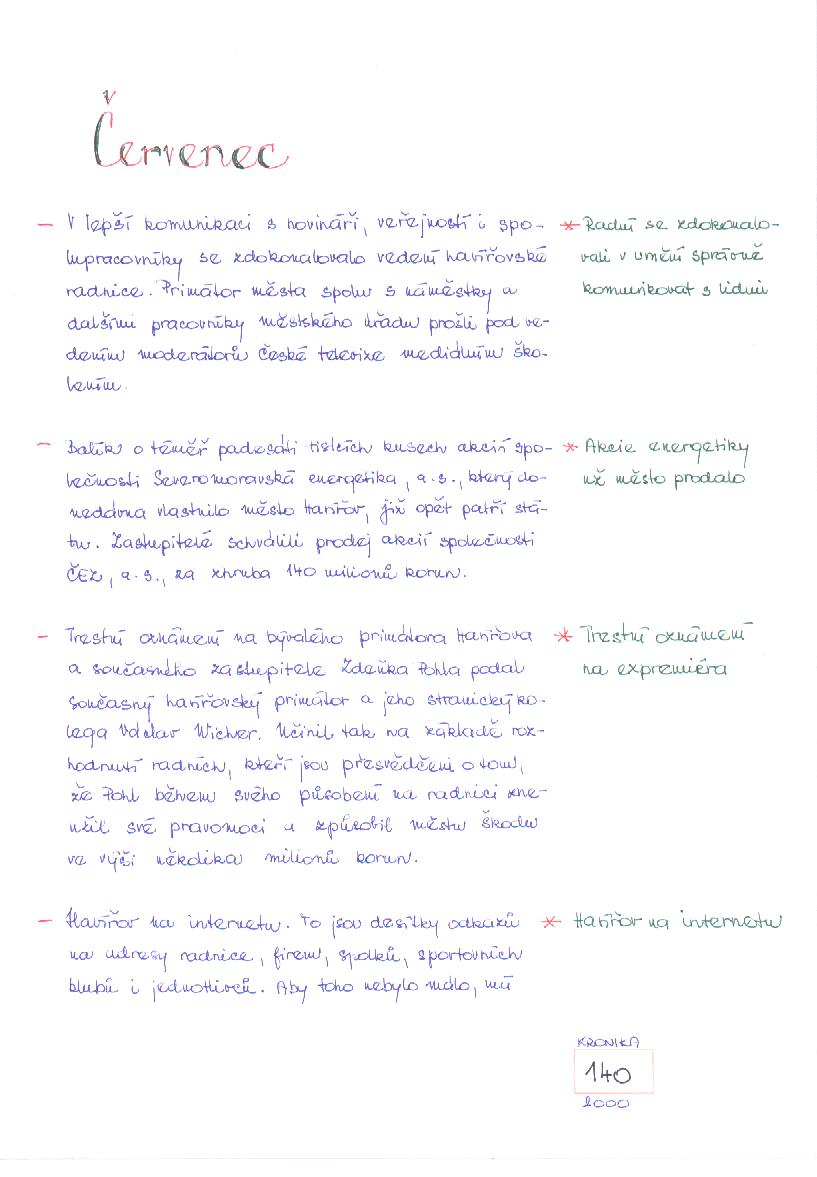 Červenec
– V lepší komunikaci s novináři, veřejností i spo-
lupracovníky se zdokonalovalo vedení havířovské
radnice. Primátor města spolu s náměstky a
dalšími pracovníky městského úřadu prošli pod ve-
dením moderátorů České televize mediálním ško-
lením.
* Radní se zdokonalo-
vali v umění správně
komunikovat s lidmi
– Balík o téměř padesáti tisících kusech akcií spo-
lečnosti Severomoravská energetika, a.s., který do-
nedávna vlastnilo město Havířov, již opět patří stá-
tu. Zastupitelé schválili prodej akcií společnosti
ČEZ, a.s., za zhruba 140 milionů korun.
* Akcie energetiky
už město prodalo
– Trestní oznámení na bývalého primátora Havířova
a současného zastupitele Zdeňka Pohla podal
současný havířovský primátor a jeho stranický ko-
lega Václav Wicher. Učinil tak na základě roz-
hodnutí radních, kteří jsou přesvědčeni o tom,
že Pohl během svého působení na radnici zne-
užil své pravomoci a způsobil městu škodu
ve výši několika milionů korun.
* Trestní oznámení
na expremiéra
– Havířov na internetu. To jsou desítky odkazů
na adresy radnice, firem, spolků, sportovních
klubů i jednotlivců. Aby toho nebylo málo, má
* Havířov na internetu
KRONIKA
140
2000